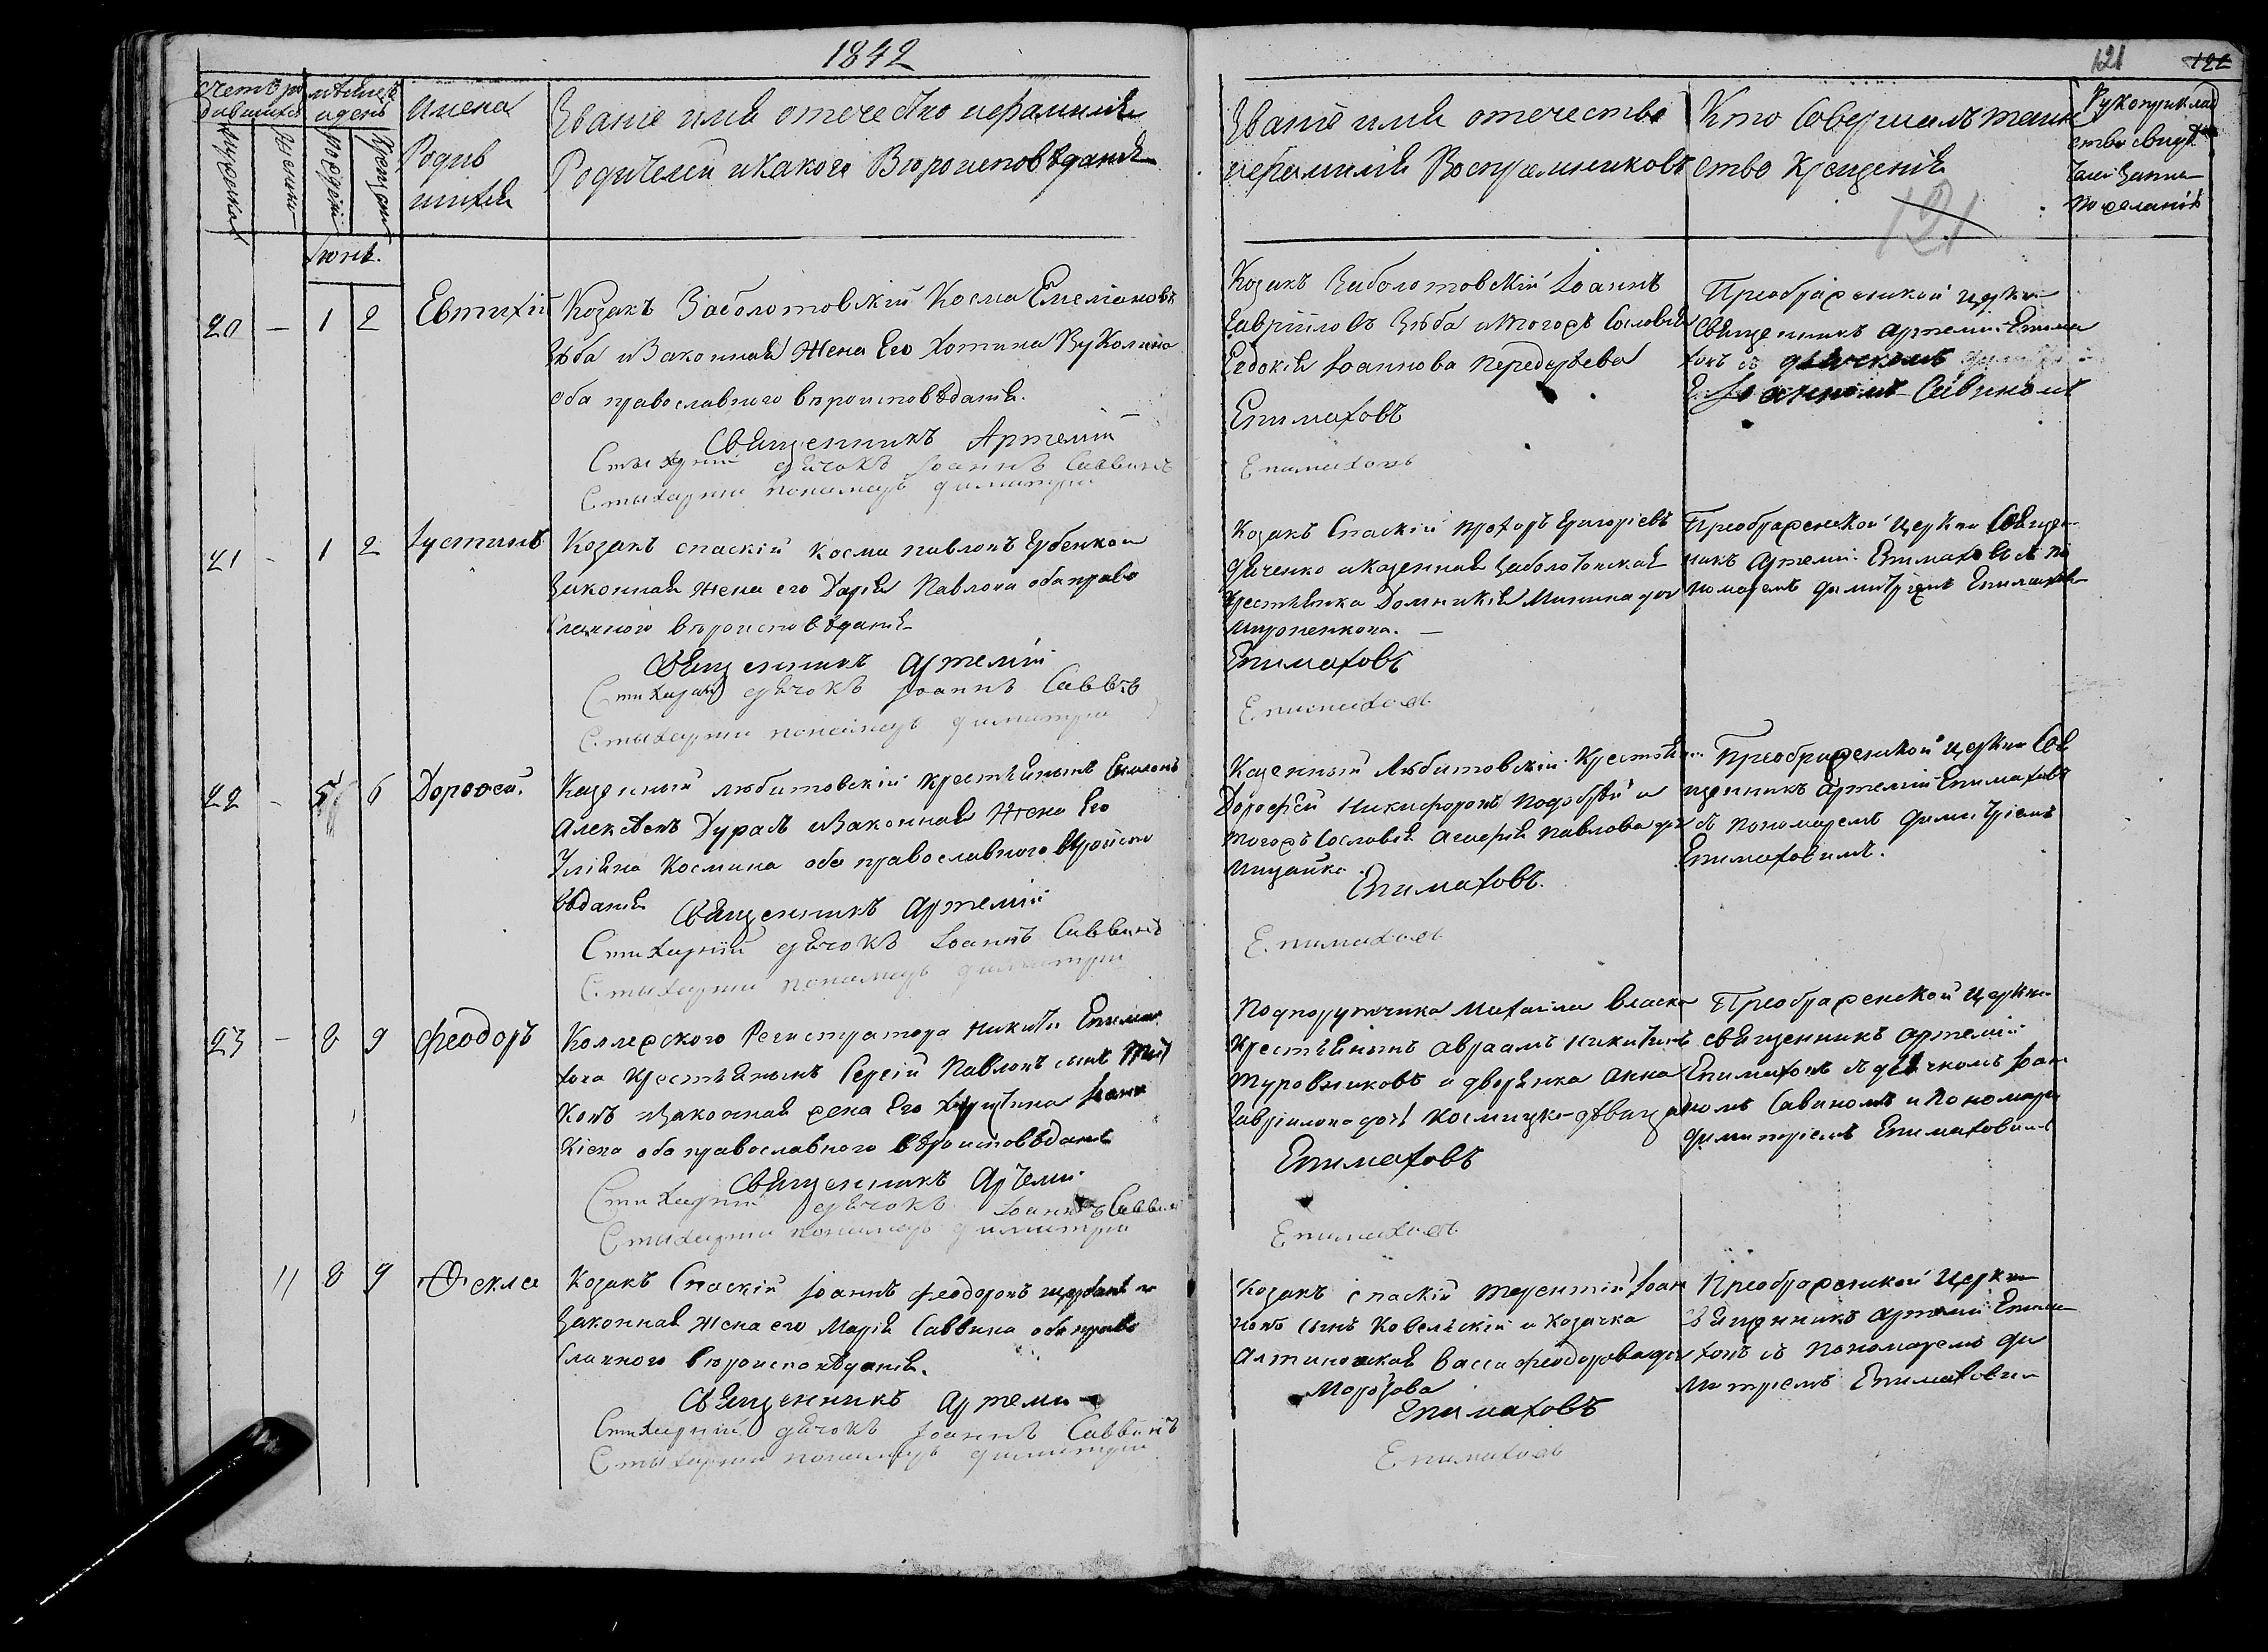 1842
121 122
счетъ ро
дившихся
мужеска
женска
мѣсяцъ
и день
рожденія
крещенія
Имена
Родив
шихся
Званіе имя отечество и фамилія
Родителей и какого Вѣроисповѣданія
Званіе имя отечество
и фамилія Воспріемниковъ
Кто Совершалъ таин
ство крещенія
121
Рукоприклад
ство свидѣ
телей записи
по желанію
Іюнь.
20 – 1 2 Евтихій
Козакъ Заболотовскій Косма Емеліановъ
Зѣба и Законная Жена Его Хотина Вуколина
оба православного вѣроисповѣданія.
Священникъ Артемій
Стихарный дячокъ Іоаннъ Саввинъ
Стыхарни пономаръ димитрій
Козакъ Заболотовскій Іоаннъ
Гавріиловъ Зѣба и тогожъ Сословія
Евдокія Іоаннова
Епимаховъ
Епимаховъ
Преображенской церкви
Священникъ Артемій Епима
ховъ съ дячкомъ
Іоанномъ Савиномъ
21 – 1 2 Іустинъ
Козакъ спаскій косма павловъ и
Законная Жена его Дарія Павлова оба право
славного вѣроисповѣданія
Священникъ Артемій
Стихарный дячокъ Іоаннъ Саввинъ
Стыхарни пономаръ димитрій
Козакъ Спаскій Прохоръ Григоріевъ
Дяченко и казенная Заболотовская
Крестянка Домникія Минина доч
Мироненкова.
Епимаховъ
Епимаховъ
Преображенской церкви Священ
никъ Артемій Епимаховъ съ по
номаремъ Димитріемъ Епимахов
22 – 5 6 Дорофей.
Казенный любитовскій крестянинъ
Алексѣевъ Дураль и Законная Жена Его
Уліяна Космина оба православного вѣроиспо
вѣданія
Священникъ Артемій
Стихарный дячокъ Іоаннъ Саввинъ
Стыхарни пономаръ димитрій
Казенный Любитовскій Крестян
Дорофѣй Никифоровъ Подобѣй и
тогожъ Сословія Агафія Павлова доч
Мицайко.
Епимаховъ.
Епимаховъ
Преображенской церкви Свя
щенникъ Артемій Епимаховъ
съ Пономаремъ Димитріемъ
Епимаховимъ.
23 – 8 9 Феодоръ
Коллежского Регистратора Никиты Епима
хова Крестянинъ Сергій Павловъ сынъ
и Законная жена Его
оба православного вѣроисповѣданія
Священникъ Артемій
Стихарный дячокъ Іоаннъ Саввин
Стыхарни пономаръ димитрій
Подпоручика Михаила Власка
Крестянинъ Авраамъ Никитинъ
Туровниковъ и дворянка Анна
Гавріилова доч Космицко-дѣвица
Епимаховъ
Епимаховъ
Преображенской церкви
священникъ Артемій
Епимаховъ съ дячкомъ Іоан
номъ Савиномъ и Пономаре
Димитріемъ Епимаховимъ
11 8 9 Фекла
Козакъ Спаскій Іоаннъ Феодоровъ и
Законная Жена его Марія Саввина оба право
славного вѣроисповѣданія.
Священникъ Артеми
Стихарный дячокъ Іоаннъ Саввинъ
Стыхарни пономаръ димитрій
Козакъ спаскій Терентій Іоан
новъ Сынъ Ковельскій и Козачка
Алтиновская Васса Феодорова доч
Морозова
Епимаховъ
Епимаховъ
Преображенской Церкви
Священникъ Артемій Епима
ховъ съ Пономаремъ Ди
митріемъ Епимахови